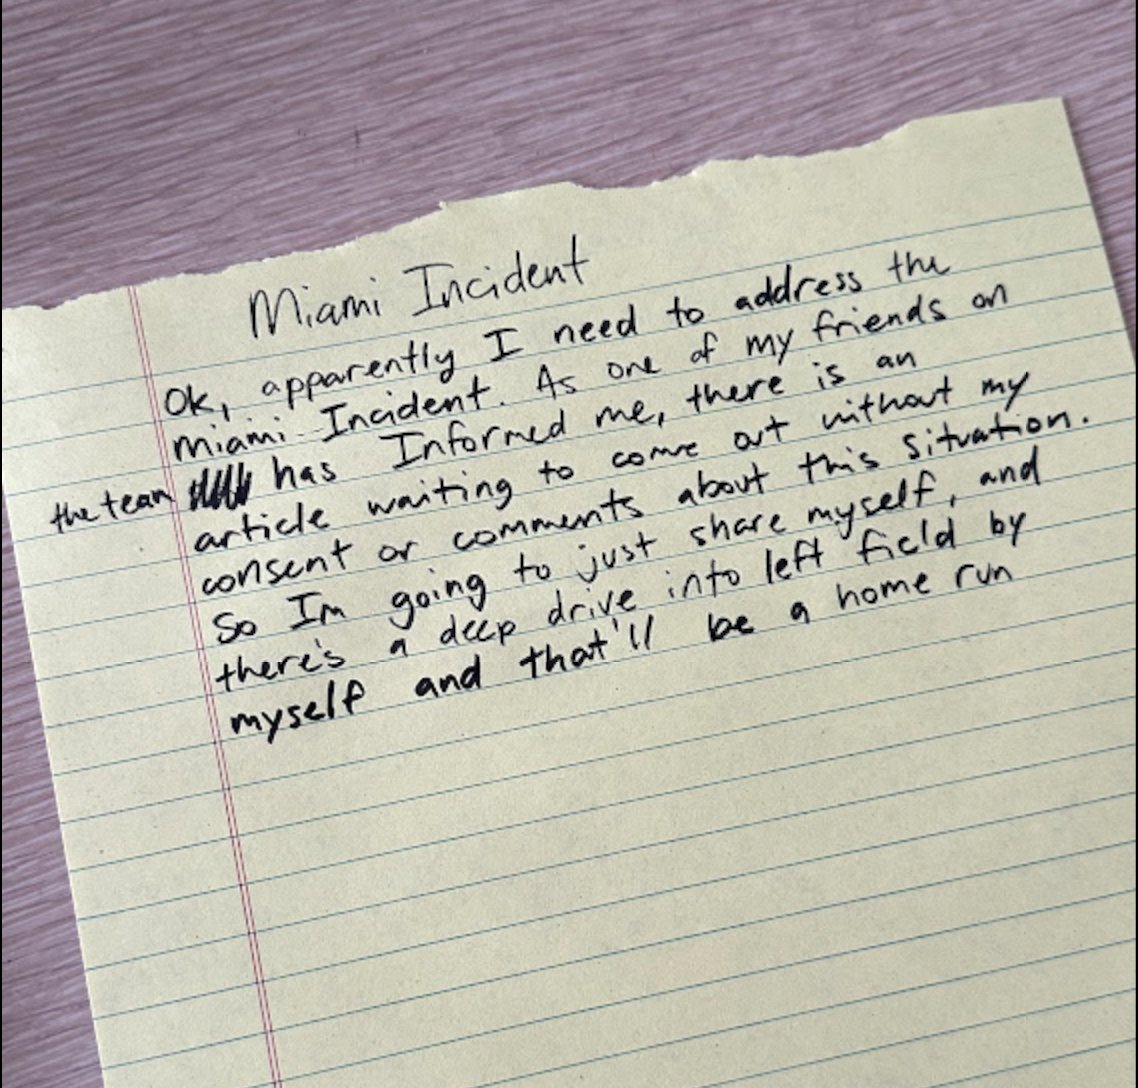 Miami Incident
Ok, apparently I need to address the
Miami Incident. As one of my friends on
the team has Informed me, there is an
article waiting to come out without my
consent or comments about this situation.
So Im going to just share myself, and
there's a deep drive into left field by
myself and that'll be a home run